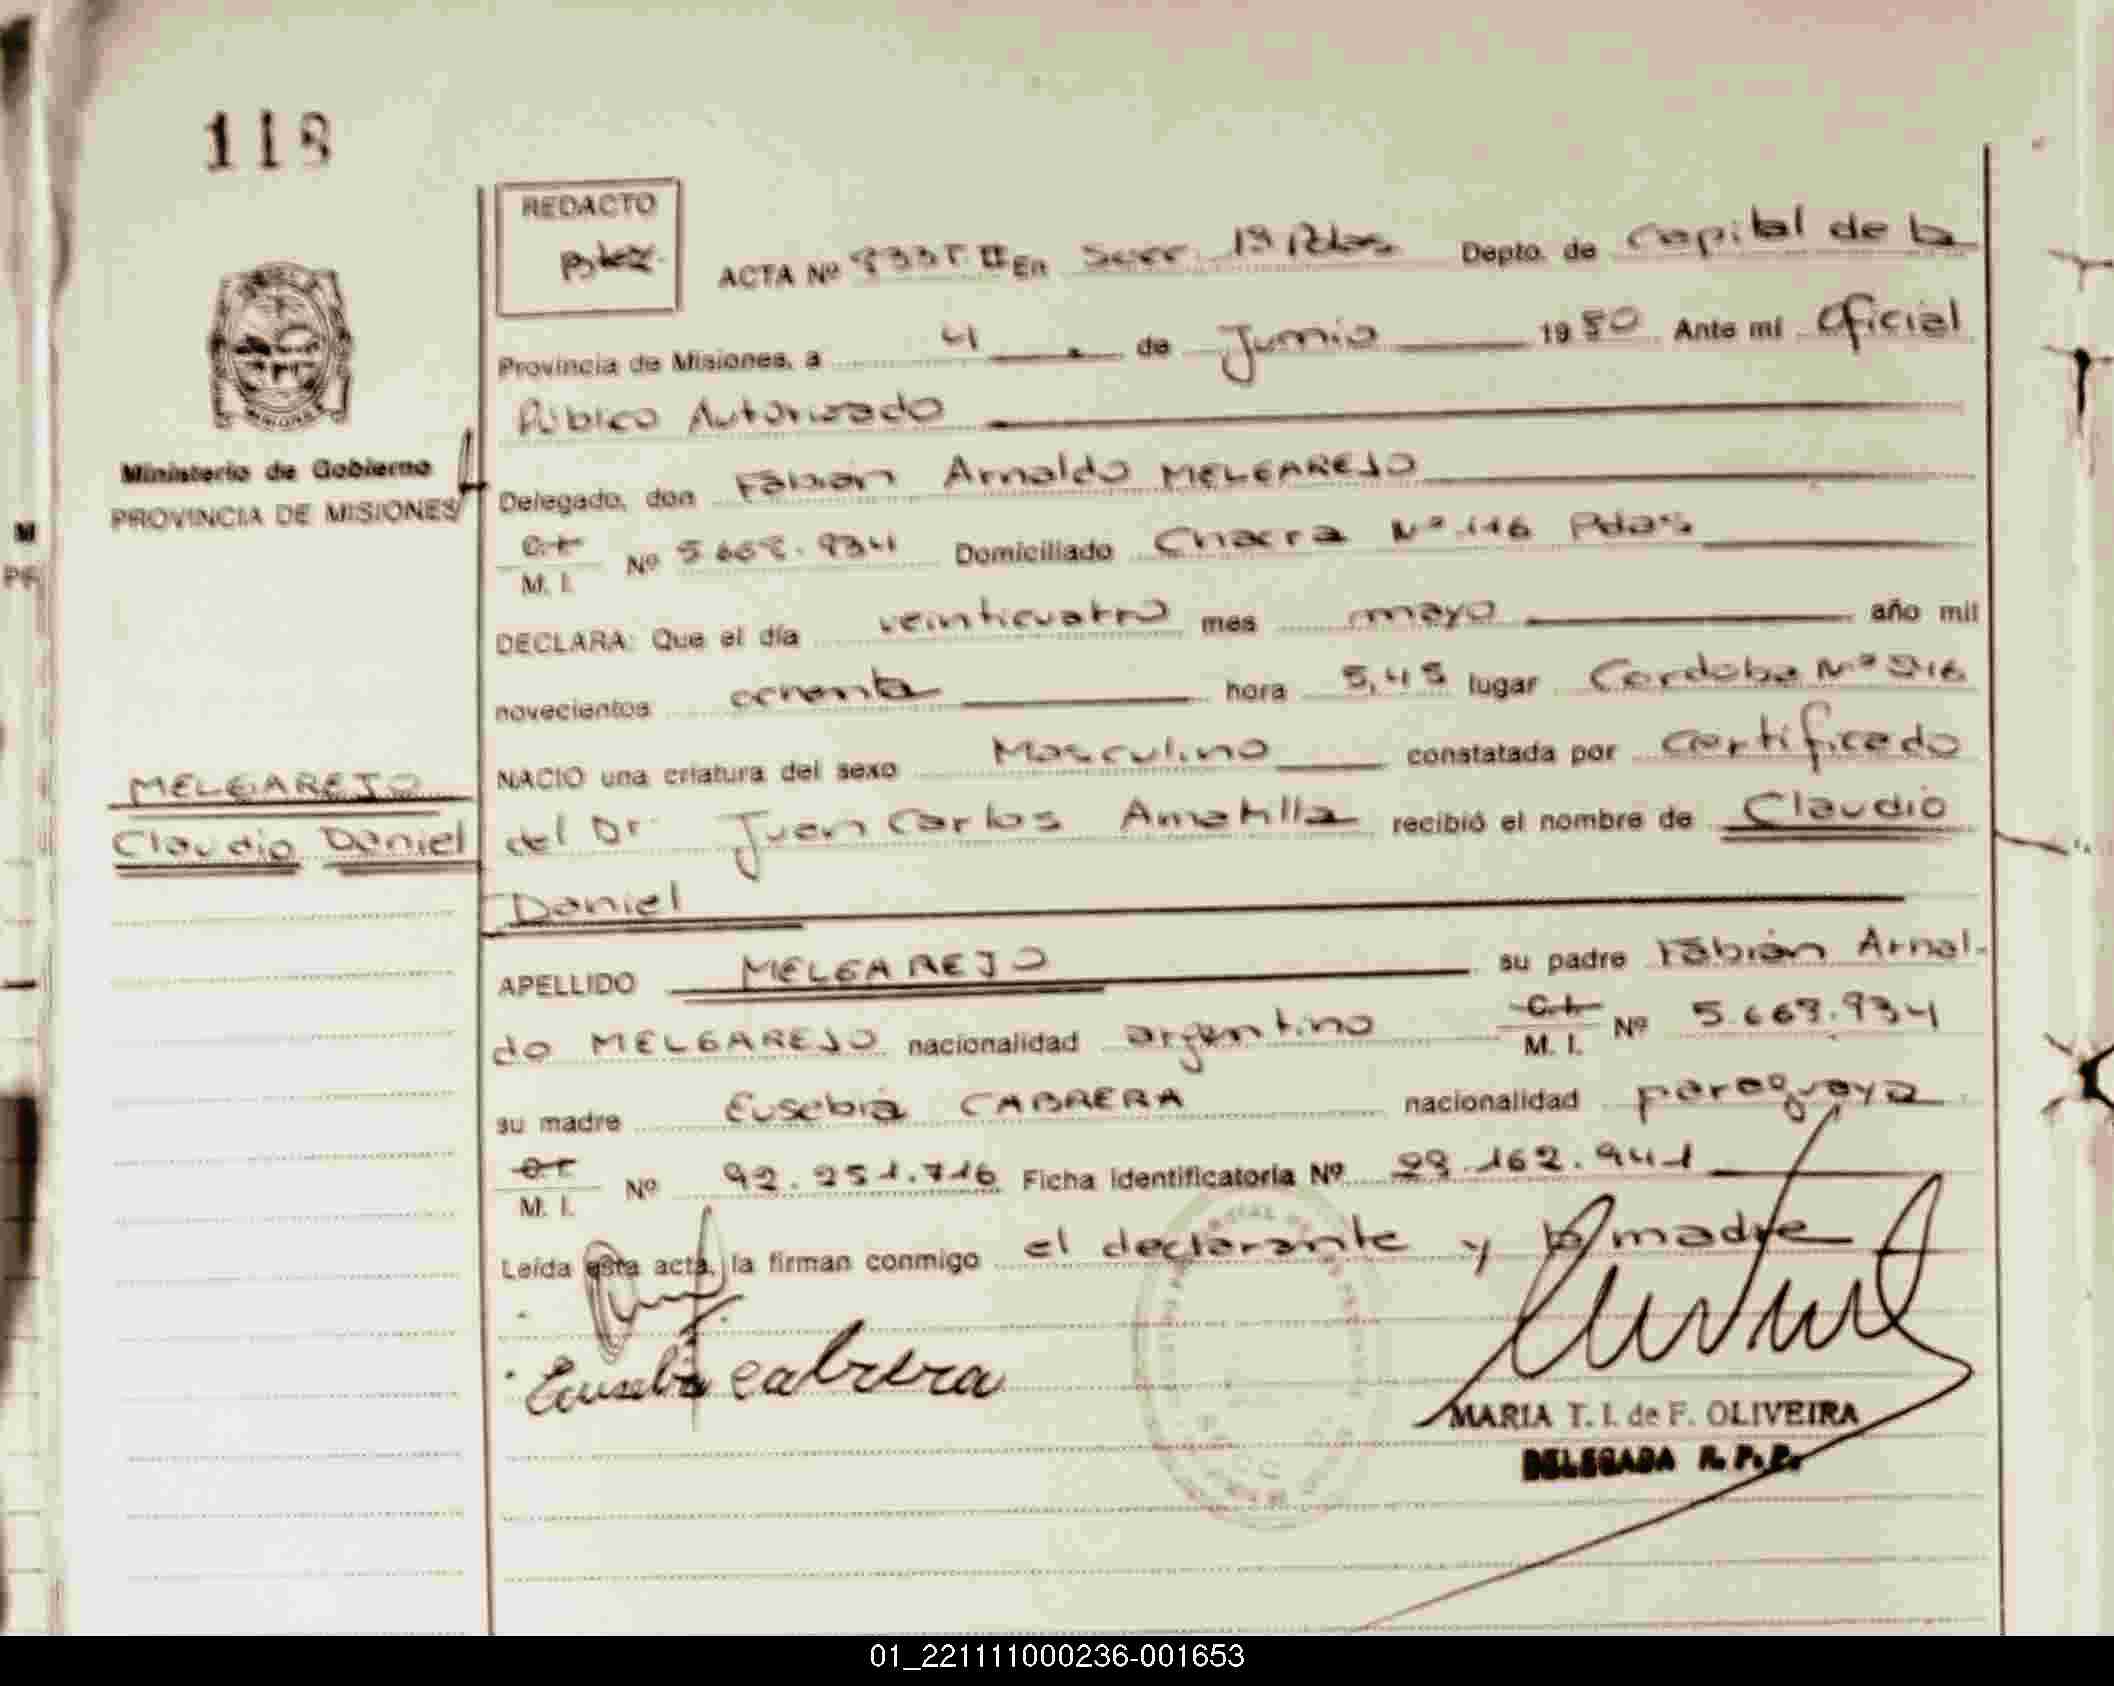 118
REDACTO
ACTA Nº 933 T II En Secc. 1ª Pdas Depto. de Capital de la
Provincia de Misiones, a 4 de Junio 1980 Ante mí Oficial
Público Autorizado
Ministerio de Gobierno
PROVINCIA DE MISIONES
Delegado, don Fabián Arnaldo MELGAREJO
C.I. M. I. Nº 5.668.934 Domiciliado Chacra Nº 116 Pdas
DECLARA: Que el día veinticuatro mes mayo año mil
novecientos ochenta hora 5,45 lugar Cordoba Nº
NACIO una criatura del sexo Masculino constatada por Certificado
MELGAREJO
Claudio Daniel
del Dr Juan Carlos Amatilla recibió el nombre de Claudio
Daniel
APELLIDO MELGAREJO su padre Fabián Arnal-
do MELGAREJO nacionalidad argentino C.I. M. I. Nº 5.668.934
su madre Eusebia CABRERA nacionalidad paraguaya
C.I. M. I. Nº 92.251.716 Ficha Identificatoria Nº 28.162.941
Leída esta acta, la firman conmigo el declarante y la madre
Eusebia Cabrera
MARIA T. I. de F. OLIVEIRA
DELEGADA R. P. P.
M
PR
01_221111000236-001653